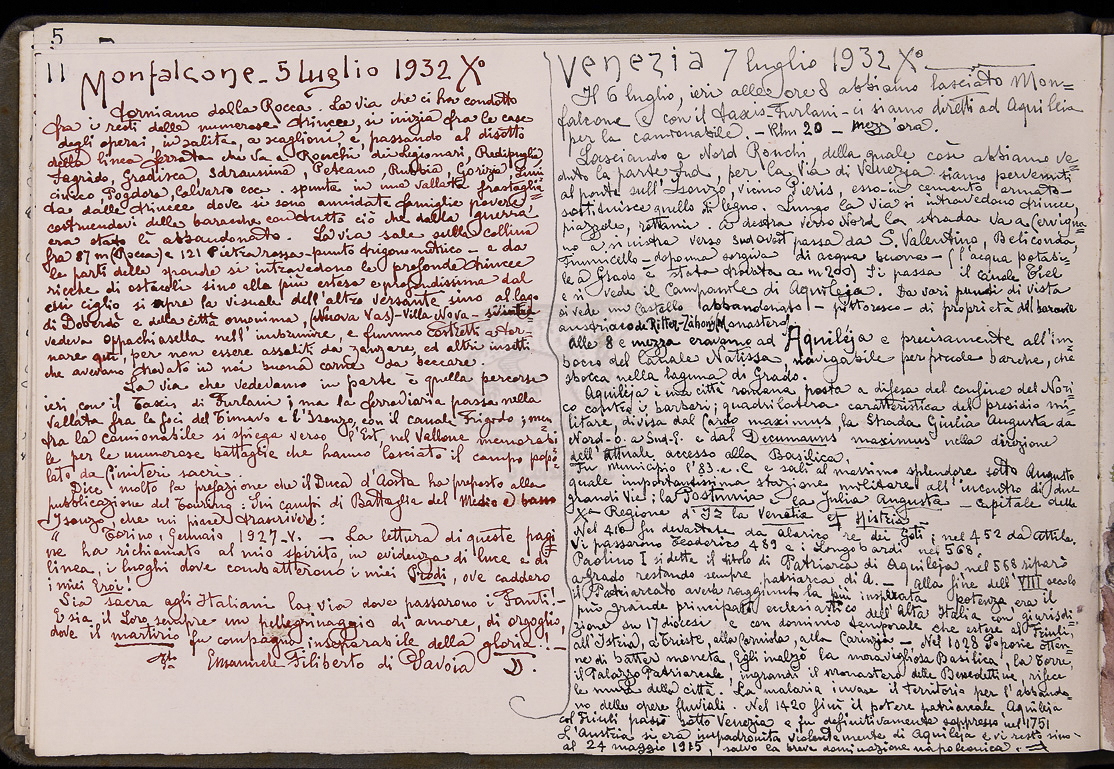 5
11 Monfalcone - 5 luglio 1932 X°
Torniamo dalla Rocca. La via che ci ha condotto
fra i resti delle numerose trincee, si inizia fra le case
degli operai, in salita, a scaglioni e, passando al disotto
della linea ferrata che va a Ronchi dei Legionari, Redipuglia,
Sagrado, Gradisca, Sdraussina, Peteano, Rubbia, Gorizia,
Podgora, Calvario ecc. spunta in una vallata frastaglia=
ta dalle trincee dove si sono annidate famiglie povere
costruendovi delle baracche con tutto ciò che dalla guerra
era stato lì abbandonato. La via sale sulla collina
fra 87 m (Rocca) e 121 Pietra rossa - punto trigonometrico - e da
le parti delle sponde si intravedono le profonde trincee
ricche di ostacoli sino alla più estesa e profondissima dal
cui ciglio si apre la visuale dell'altro versante sino al lago
di Doberdò e della città omonima, (Nuova Vas) - Villa Nova -
vedeva Oppachiasella nell'imbrunire, e fummo costretti a tor=
nare giù, per non essere assaliti da zanzare, ed altri insetti
che avevano trovato in noi buona carne da beccare.
La via che vedevamo in parte è quella percorsa
ieri con il Taxis di Furlani; ma la ferroviaria passa nella
vallata fra le foci del Timavo e l'Isonzo, con il canale
tra la camionabile si spiega verso l'Est, nel Vallone memorabi=
le per le numerose battaglie che hanno lasciato il campo popo=
lato da Cimiteri sacri.
Dice molto la prefazione che il Duca d'Aosta ha preposto alla
pubblicazione del Touring: Sui campi di Battaglia del Medio e basso
Isonzo, che mi piace trascrivere:
" Torino, Gennaio 1927 - V. - La lettura di queste pagi=
ne ha richiamato al mio spirito, in evidenza di luce e di
linea, i luoghi dove combatterono i miei Prodi, ove caddero
i miei Eroi!
Sia sacra agli Italiani la via dove passarono i Fanti!
E sia il Loro sempre un pellegrinaggio di amore, di orgoglio,
dove il martirio fu compagno inseparabile della gloria! -
Emanuele Filiberto di Savoia ".
Venezia 7 luglio 1932 X°
Il 6 luglio, ieri alle ore 8 abbiamo lasciato Mon=
falcone e con il taxis Furlani - ci siamo diretti ad Aquileia
per la camionabile. - Klm 20 - mezz'ora.
Lasciando a Nord Ronchi, della quale così abbiamo ve=
duto la parte Sud, per la Via di Venezia siamo pervenuti
al ponte sull'Isonzo, vicino Pieris, esso in cemento armato
sostituisce quello di legno. Lungo la via si intravedono trincee,
piazzole, rottami. A destra verso Nord la strada va a Cervigna=
no a sinistra verso sud ovest passa da S. Valentino, Beliconda,
Fiumicello - dopo una sorgiva di acqua buona - (l'acqua potabi=
le a Grado è stata trovata a m 200) Si passa il canale Tiel
e si vede il Campanile di Aquileja. Da vari punti di vista
si vede un Castello abbandonato - pittoresco - di proprietà del barone
austriaco de Ritter-Zahony Monastero.
Alle 8 e mezza eravamo ad Aquileja e precisamente all'im=
bocco del Canale Natissa navigabile per piccole barche, che
sbocca nella laguna di Grado.
Aquileja è una città romana posta a difesa del confine del Nori=
co contro i barbari; quadrilatera caratteristica del presidio mi=
litare, divisa dal Cardo maximus, la Strada Giulia Augusta da
Nord-O. a Sud-E. e dal Decumanus maximus nella direzione
dell'attuale accesso alla Basilica.
Fu municipio l'83. e C e salì al massimo splendore sotto Augusto
quale importantissima stazione militare all'incontro di due
grandi Vie; la Postumia e la Julia Augusta - Capitale della
Xa Regione d'It la Venetia et Histria.
Nel 410 fu devastata da Alarico re dei Goti; nel 452 da Attila.
Vi passarono Teodorico 489 e i Longobardi nel 568.
Paolino I si dette il titolo di Patriarca di Aquileja nel 568 riparò
a Grado restando sempre patriarca di A. - Alla fine dell'VIII secolo
il Patriarcato aveva raggiunto la più insperata potenza era il
più grande principato ecclesiastico dell'Alta Italia con giurisdi=
zione su 17 diocesi e con dominio temporale che estese al Friuli,
all'Istria, a Trieste, alla Carniola, alla Carinzia - Nel 1028 Popone otten=
ne di batter moneta, Egli inalzò la meravigliosa Basilica, la Torre,
il Palazzo Patriarcale, ingrandì il monastero delle Benedettine, rifece
le mura della città. La malaria invase il territorio per l'abbando=
no delle opere fluviali. Nel 1420 finì il potere patriarcale, Aquileja
col Friuli passò sotto Venezia e fu definitivamente soppresso nel 1751
L'Austria si era impadronita violentemente di Aquileja e vi restò sino
al 24 maggio 1915, salvo la breve dominazione napoleonica. -